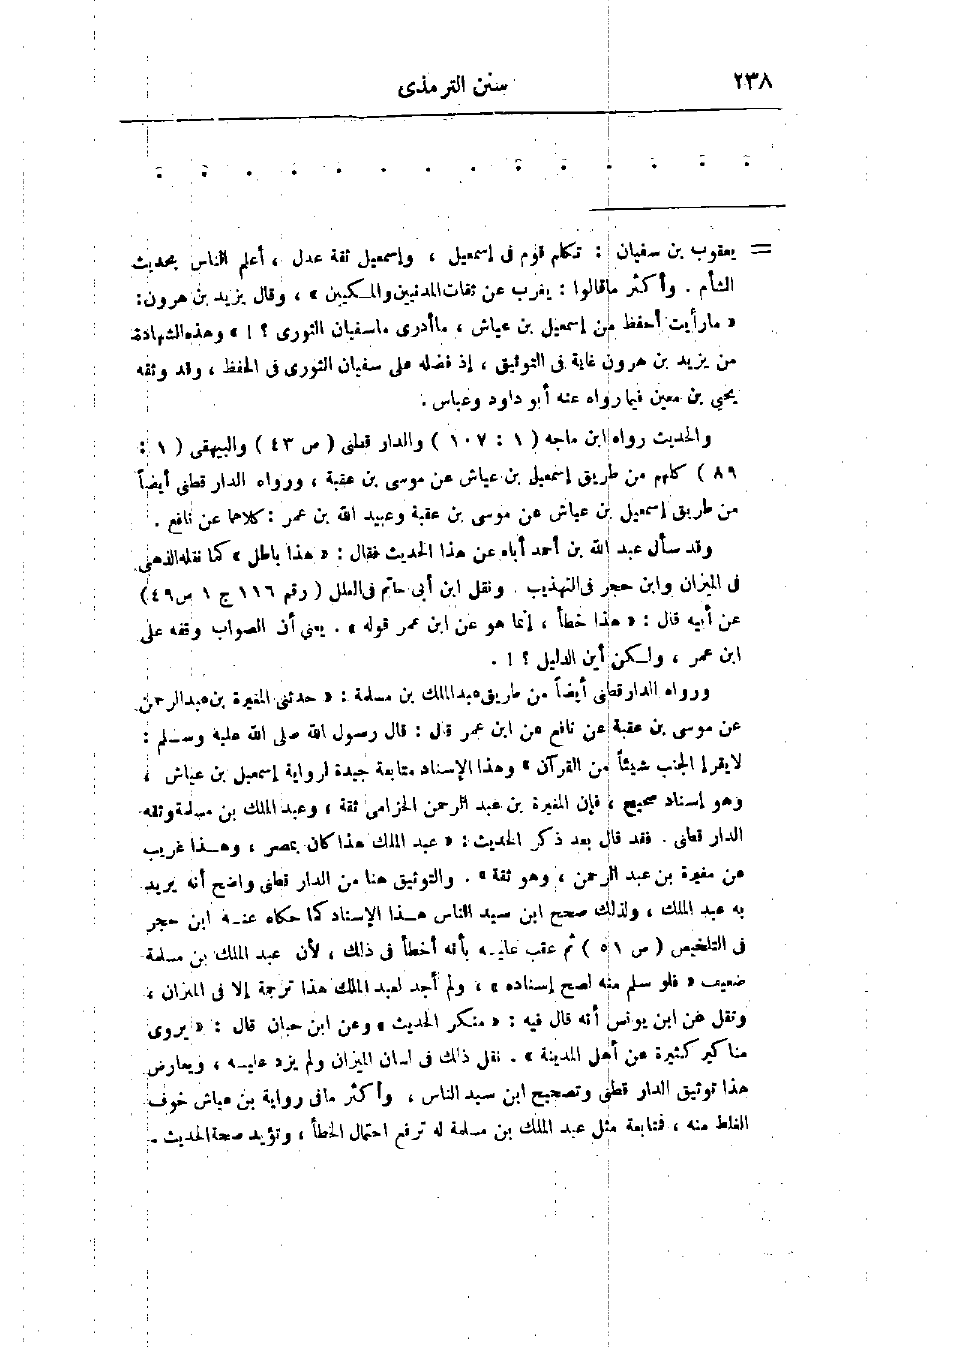 ٢٣٨
سنن الترمذى
= يعقوب بن سفيان : تكلم قوم فى إسمعيل ، وإسمعيل ثقة عدل ، أعلم الناس بحديث
الشأم . وأكثر ماقالوا : يغرب عن ثقات المدنيين والمكيين » ، وقال يزيد بن هرون:
« مارأيت أحفظ من إسمعيل بن عياش ، ماأدرى ماسفيان الثورى ؟ ! » وهذه الشهادة
من يزيد بن هرون غاية فى التوثيق ، إذ فضله على سفيان الثورى فى الحفظ ، وقد وثقه
يحيى بن معين فيما رواه عنه أبو داود وعباس .
والحديث رواه ابن ماجه ( ١ : ١٠٧ ) والدار قطنى ( ص ٤٣ ) والبيهقى ( ١ :
٨٩ ) كلهم من طريق إسمعيل بن عياش عن موسى بن عقبة ، ورواه الدار قطنى أيضاً
من طريق إسمعيل بن عياش عن موسى بن عقبة وعبيد الله بن عمر : كلاهما عن نافع .
وقد سأل عبد الله بن أحمد أباه عن هذا الحديث فقال : « هذا باطل » كما نقله الذهبى
فى الميزان وابن حجر فى التهذيب . ونقل ابن أبى حاتم فى العلل ( رقم ١١٦ ج ١ ص ٤٩ )
عن أبيه قال : « هذا خطأ ، إنما هو عن ابن عمر قوله » . يعني أن الصواب وقفه على
ابن عمر ، ولكن أين الدليل ؟ ! .
ورواه الدارقطنى أيضاً من طريق عبد الملك بن مسلمة : « حدثنى المغيرة بن عبد الرحمن
عن موسى بن عقبة عن نافع عن ابن عمر قال : قال رسول الله صلى الله عليه وسلم :
لايقرإ الجنب شيئاً من القرآن » وهذا الإسناد متابعة جيدة لرواية إسمعيل بن عياش ،
وهو إسناد صحيح ، فإن المغيرة بن عبد الرحمن الحزامى ثقة ، وعبد الملك بن مسلمة وثقه
الدار قطنى . فقد قال بعد ذكر الحديث : « عبد الملك هذا كان بمصر ، وهذا غريب
عن مغيرة بن عبد الرحمن ، وهو ثقة » . والتوثيق هنا من الدار قطنى واضح أنه يريد
به عبد الملك ، ولذلك صحح ابن سيد الناس هذا الإسناد كما حكاه عنه ابن حجر
فى التلخيص ( ص ٥١ ) ثم عقب عليه بأنه أخطأ فى ذلك ، لأن عبد الملك بن مسلمة
ضعيف « فلو سلم منه لصح إسناده » ، ولم أجد لعبد الملك هذا ترجمة إلا فى الميزان ،
ونقل عن ابن يونس أنه قال فيه : « منكر الحديث » وعن ابن حبان قال : « يروى
مناكير كثيرة عن أهل المدينة » . نقل ذلك فى لسان الميزان ولم يزد عليه ، ويعارض
هذا توثيق الدار قطنى وتصحيح ابن سيد الناس ، وأكثر مافى رواية بن عياش خوف
الغلط منه ، فمتابعة مثل عبد الملك بن مسلمة له ترفع احتمال الخطأ ، وتؤيد صحة الحديث .